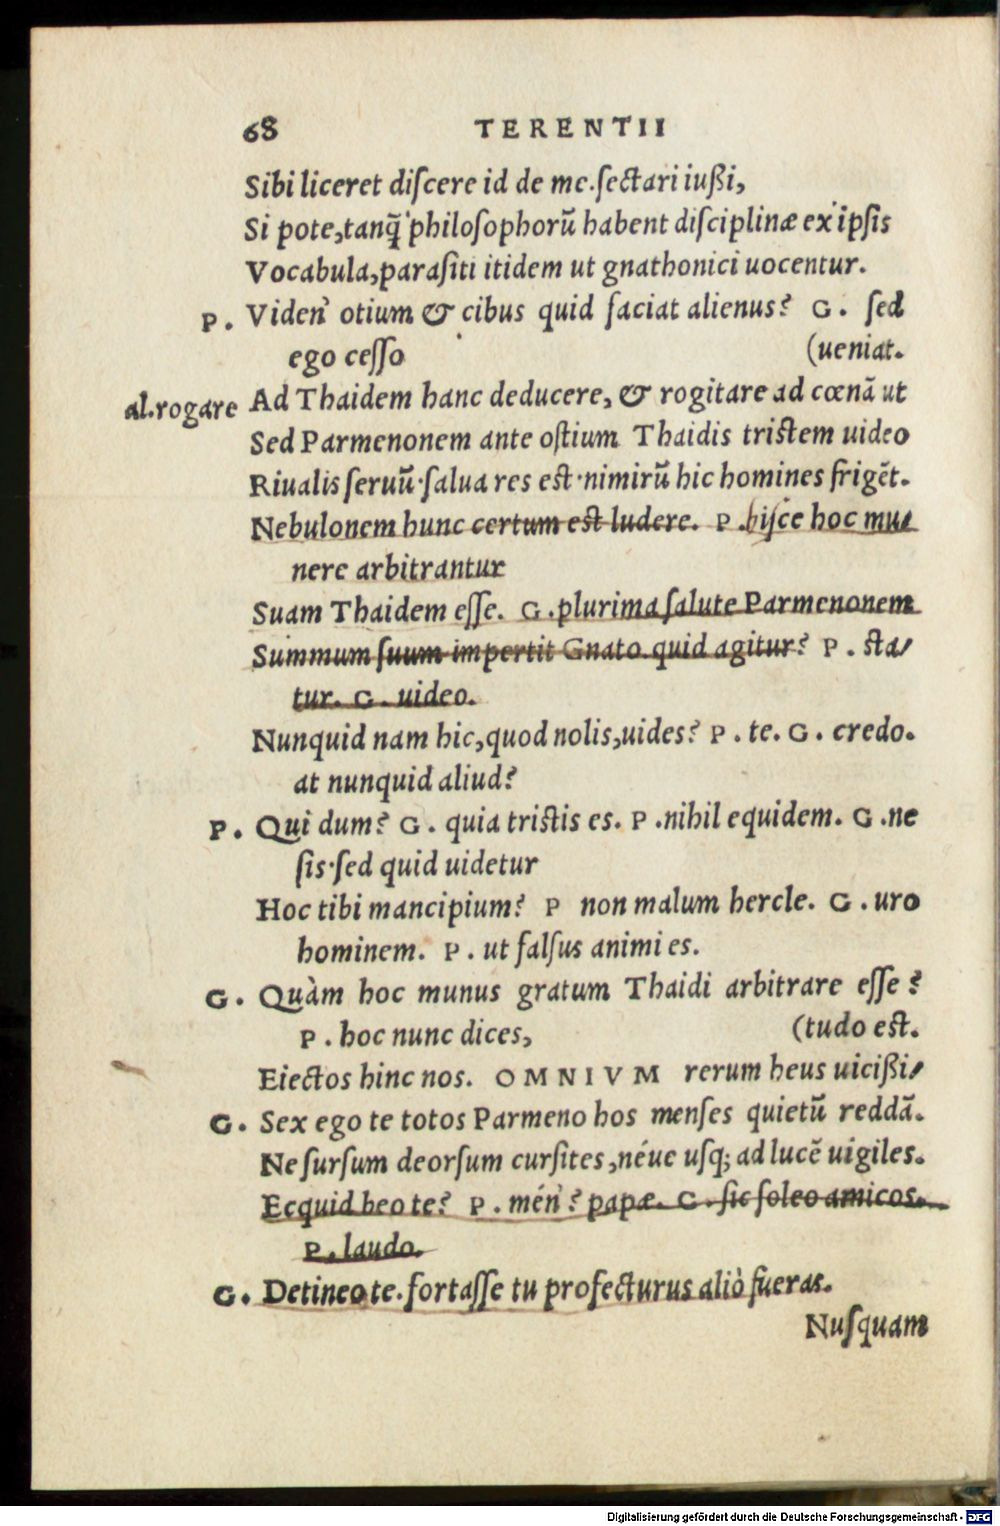 68 TERENTII
Sibi liceret discere id de me. sectari iußi,
Si pote, tanq̃ philosophorũ habent disciplinæ ex ipsis
Vocabula, parasiti itidem ut gnathonici uocentur.
P. Viden' otium & cibus quid faciat alienus? G. sed
ego cesso (ueniat.
al. rogare Ad Thaidem hanc deducere, & rogitare ad cœnã ut
Sed Parmenonem ante ostium Thaidis tristem uideo
Riualis seruũ. salua res est. nimirũ hic homines frigẽt.
Nebulonem hunc certum est ludere. P. hisce hoc mu/
nere arbitrantur
Suam Thaidem esse. G. plurima salute Parmenonem
Summum suum impertit Gnato. quid agitur? P. sta/
tur. G. uideo.
Nunquid nam hic, quod nolis, uides? P. te. G. credo.
at nunquid aliud?
P. Qui dum? G. quia tristis es. P. nihil equidem. G. ne
sis. sed quid uidetur
Hoc tibi mancipium? P non malum hercle. G. uro
hominem. P. ut falsus animi es.
G. Quàm hoc munus gratum Thaidi arbitrare esse?
P. hoc nunc dices, (tudo est.
Eiectos hinc nos. OMNIVM rerum heus uicißi/
G. Sex ego te totos Parmeno hos menses quietũ reddã.
Ne sursum deorsum cursites, néue usq; ad lucẽ uigiles.
Ecquid beo te? P. mén'? papæ. G. sic soleo amicos.
P. laudo.
G. Detineo te. fortasse tu profecturus aliò fueras.
Nusquam
Digitalisierung gefördert durch die Deutsche Forschungsgemeinschaft - DFG